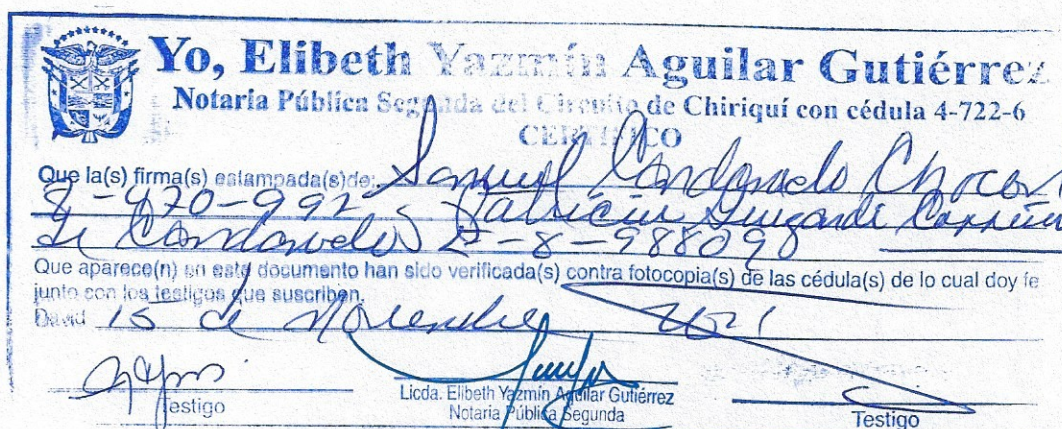 Yo, Elibeth Yazmín Aguilar Gutiérrez
Notaria Pública Segunda del Circuito de Chiriquí con cédula 4-722-6
CERTIFICO
Que la(s) firma(s) estampada(s)de: Samuel Candanedo
8-470-992
de Candanedo E-8-988090
Que aparece(n) en este documento han sido verificada(s) contra fotocopia(s) de las cédula(s) de lo cual doy fe
junto con los testigos que suscriben.
David 15 de Noviembre 2021
Testigo
Licda. Elibeth Yazmín Aguilar Gutiérrez
Notaria Pública Segunda
Testigo